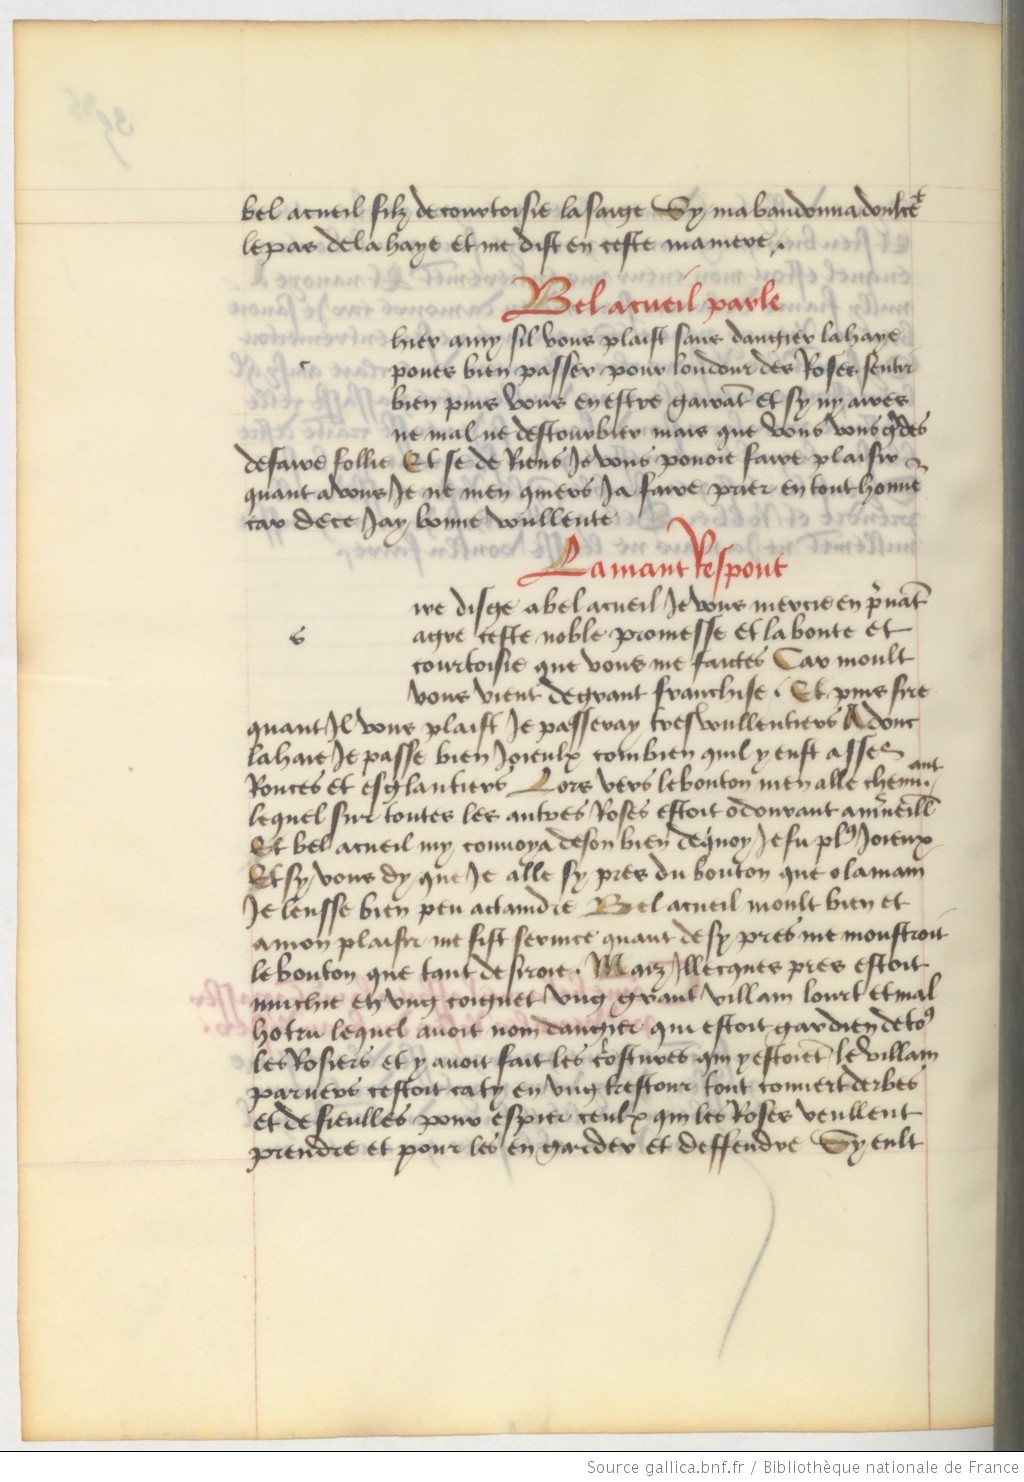 bel acueil filz de courtoisie la saige Sy mabandonna doulcet
le pas de la haye et me dist en ceste maniere.
Bel acueil parle
hier amy sil vous plaist sans dangier la haye
c poues bien passer pour loudour des Roses sentir
bien puis vous en estre garāt et sy ny aures
ne mal ne destourbier mais que vous vous gardes
de faire follie Et se de Riens Je vous pouoie faire plaisir
quant a vous Je ne men quiers Ja faire prier en tout honne
car de ce Jay bonne vullente
Lamant Respont
ire disge a bel acueil Je vous mercie en prenāt
s agre ceste noble promesse et la bonte et
courtoisie que vous me faictes Car moult
vous vient de grant franchise. Et puis sire
quant Il vous plaist Je passeray tres wullentiers Adonc
la haie Je passe bien Joieulx combien quil y eust asses
Ronces et esglantiers Lors vers le bouton men alle chemi.ant
lequel sur toutes les autres Roses estoit odourant a merueill
Et bel acueil my conuoya de son bien de quoy Je fu plꝰ Joieux
Et sy vous dy que Je alle sy pres du bouton que a la main
Je leusse bien peu actaindre Bel acueil moult bien et
a mon plaisir me fist seruice quant de sy pres me monstroit
le bouton que tant desiroie. Maiz Illecques pres estoit
muchie en vng coignet vng grant villain lourt et mal
hotru lequel auoit nom dangier qui estoit gardien de toꝰ
les Rosiers et y auoit fait les costures qui y estoiēt le villain
paruers cestoit caty en vng destour tout couuert derbes
et de fieulles pour espier ceulx qui les Roses veullent
prendre et pour les en garder et deffendre Sy eult
Source gallica.bnf.fr / Bibliothèque nationale de France